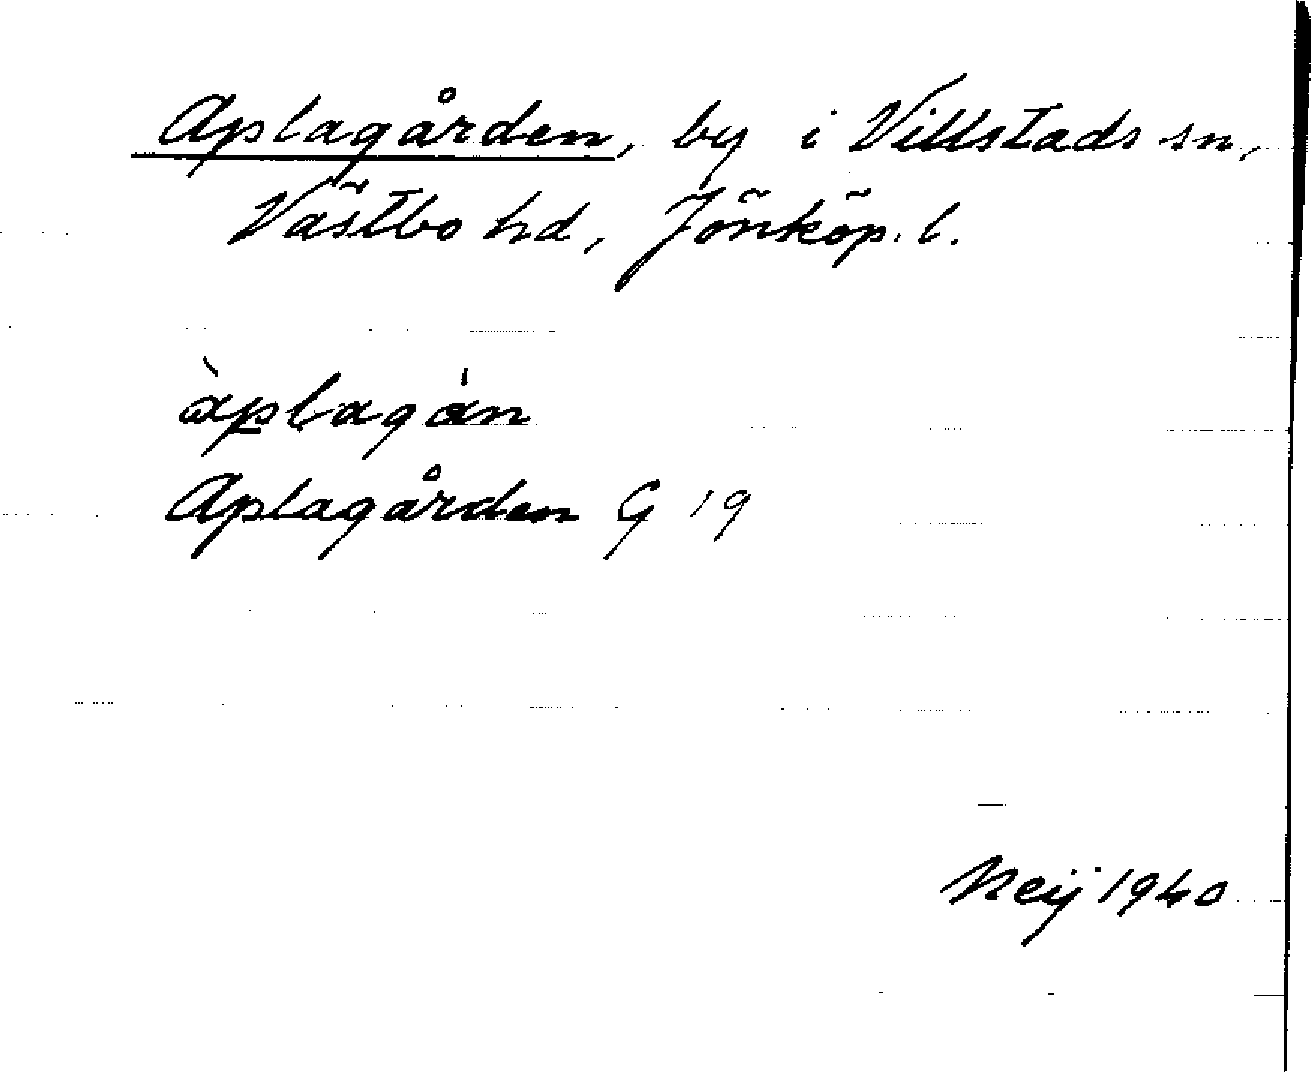 Aplagården, by i Villstads sn,
Västbo hd, Jönköp. l.
àplagán
Aplagården G 19
Neij 1940